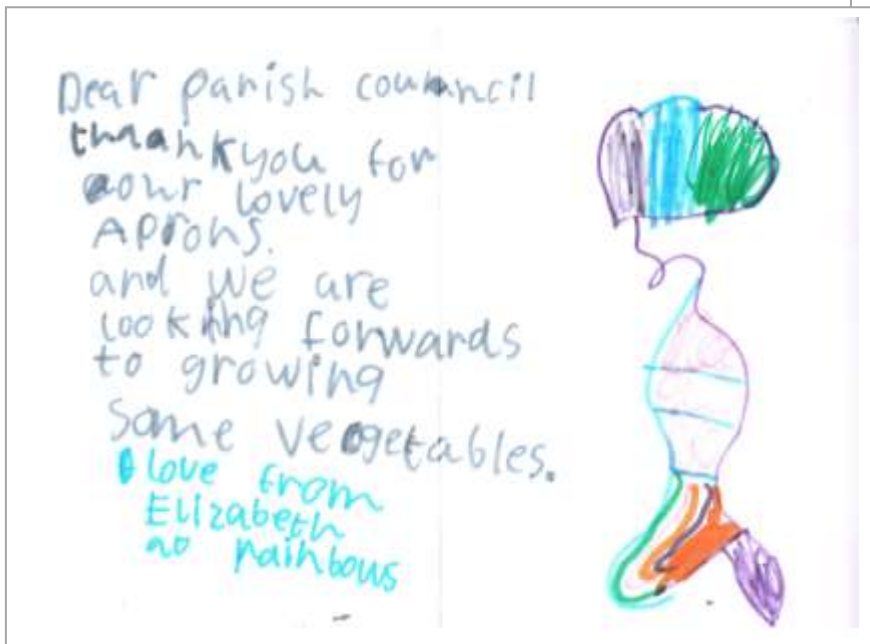 Dear parish council
thankyou for
our lovely
Aprons.
and we are
looking forwards
to growing
some vegetables.
love from
Elizabeth
rainbows